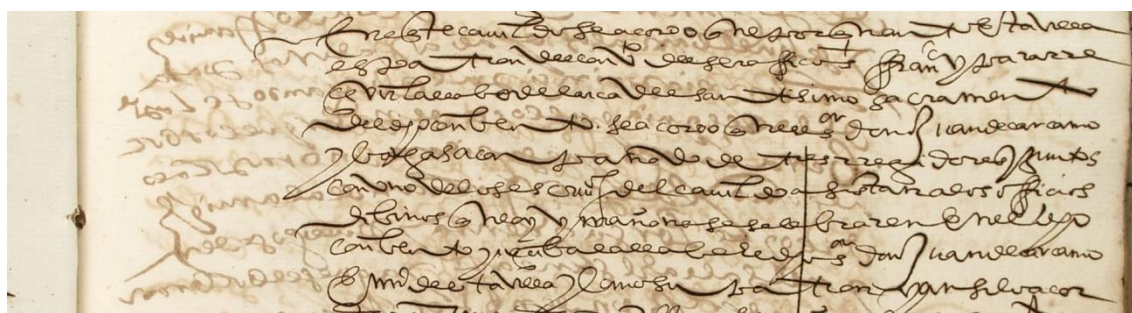 En este cauildo se acordo que por quanto esta villa
es patron del conuto del serafico s franco y para rre
ceuir la llabe del arca del santisimo sacramento
del dho conbento se acordo quel sor don Juan de carcamo
y bargas acompañado de tres rregidores y juntos
con uno de los escriuos del cauildo asistan a los officios
dibinos que oy y mañana se selebraren en el dho
conbento y reciba la llabe el dho sor don Juan de carcamo
en nre de esta villa y como su patron y ansi lo acor